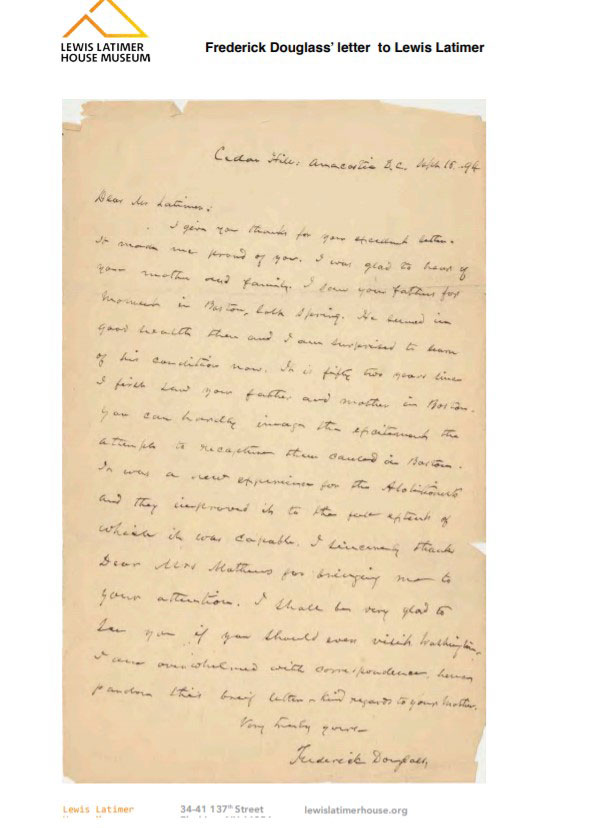 LEWIS LATIMER
HOUSE MUSEUM
Frederick Douglass' letter to Lewis Latimer
Cedar Hill: Anacostia D.C. Sept. 15. 94
Dear Mr Latimer:
I give you thanks for your excellent letter.
It made me proud of you. I was glad to hear of
your mother and family. I saw your father for
moment in Boston, last Spring. He seemed in
good health then and I am surprised to learn
of his condition now. It is fifty two years since
I first saw your father and mother in Boston.
You can hardly imagine the excitement the
attempts to recapture them caused in Boston.
It was a new experience for the Abolitionists
and they improved it to the full extent of
which it was capable. I sincerely thank
Dear Mrs Mathews for bringing me to
your attention. I shall be very glad to
see you if you should ever visit Washington.
I am overwhelmed with correspondence, hence
pardon this brief letter - kind regards to your Mother.
Very truly yours
Frederick Douglass
Lewis Latimer
34-41 137th Street
lewislatimerhouse.org